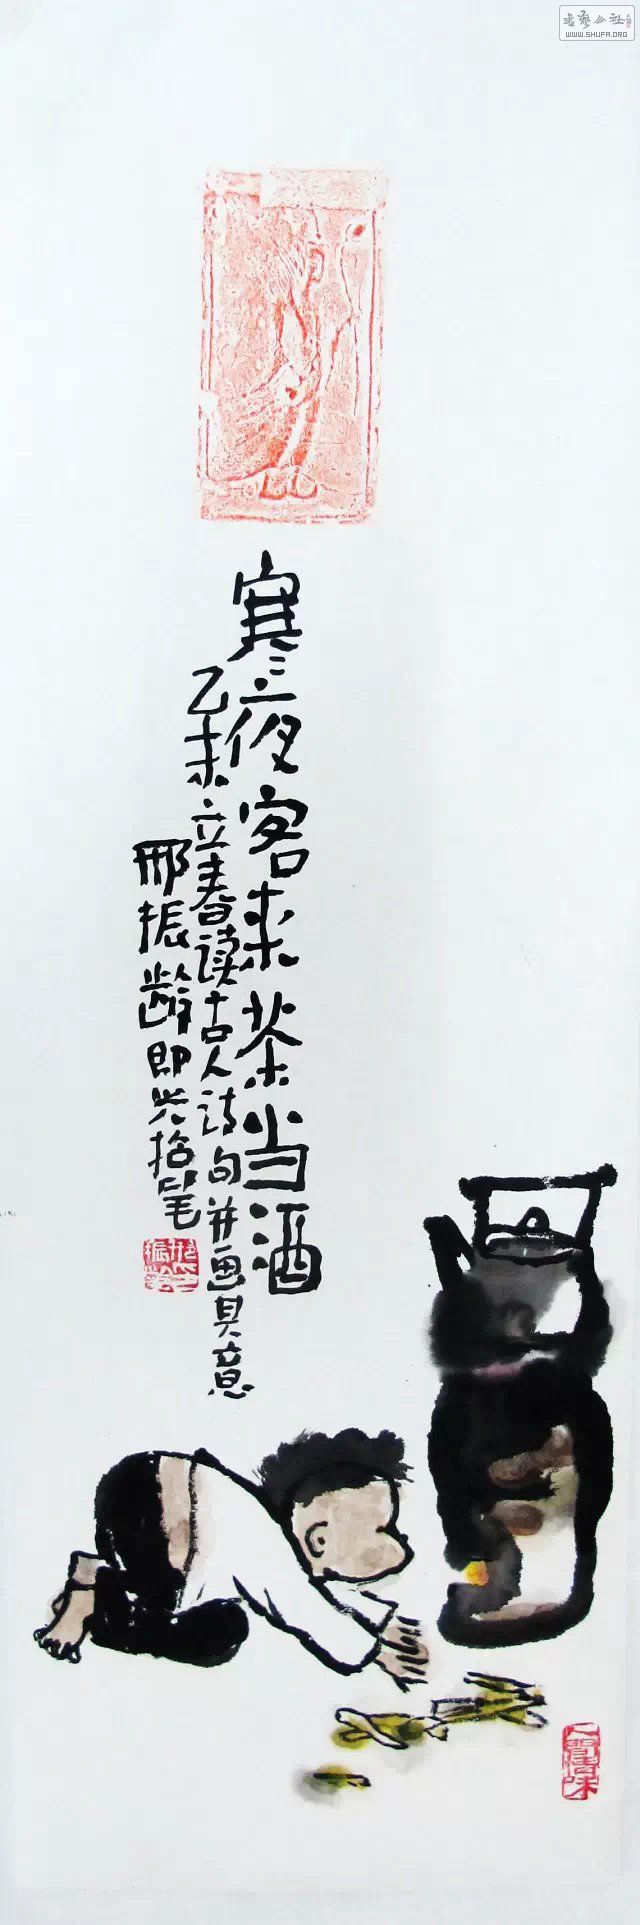 书艺公社
WWW.SHUFA.ORG
寒夜客来茶当酒
乙未立春读古人诗句并画其意
邢振龄即兴拾笔